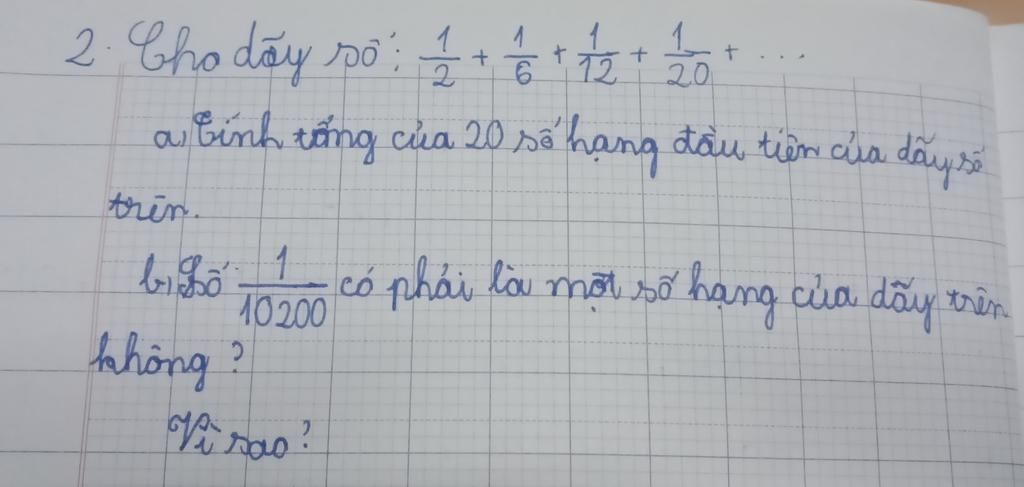 2. Cho dãy số: 1/2 + 1/6 + 1/12 + 1/20 + ...
a, Tính tổng của 20 số hạng đầu tiên của dãy số
trên.
b, Số 1/10200 có phải là một số hạng của dãy trên
không?
Vì sao?